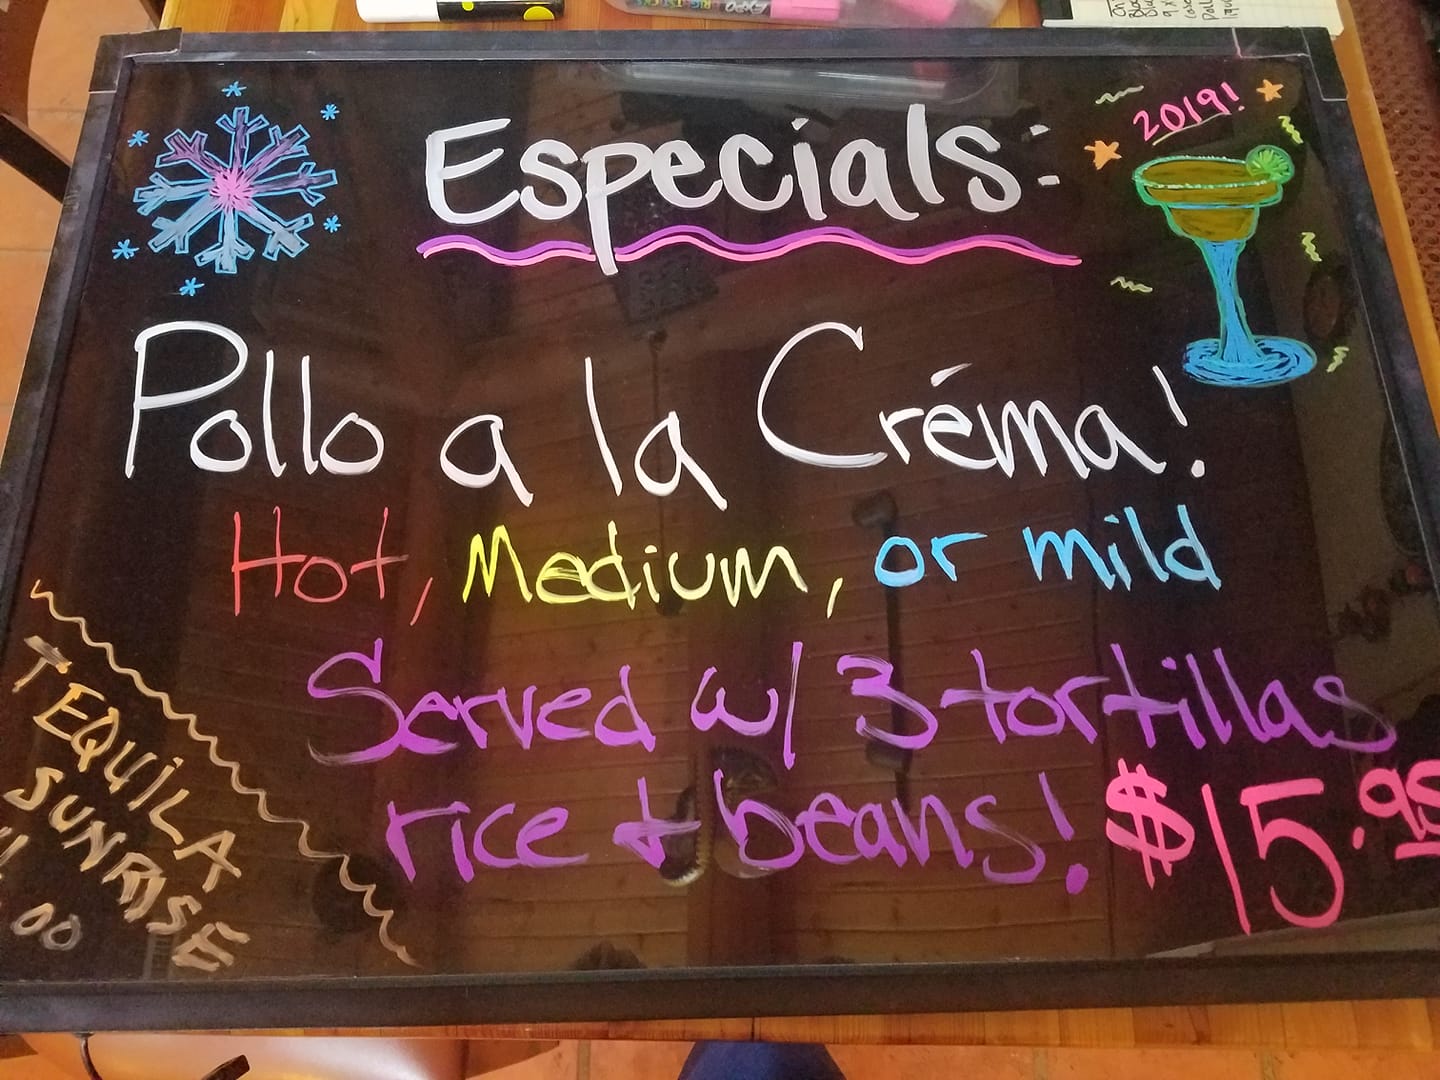 Especials:
2019!
Pollo a la Créma!
Hot, Medium, or mild
Served w/ 3 tortillas
rice + beans! $15.95
TEQUILA
SUNRISE
EXPO